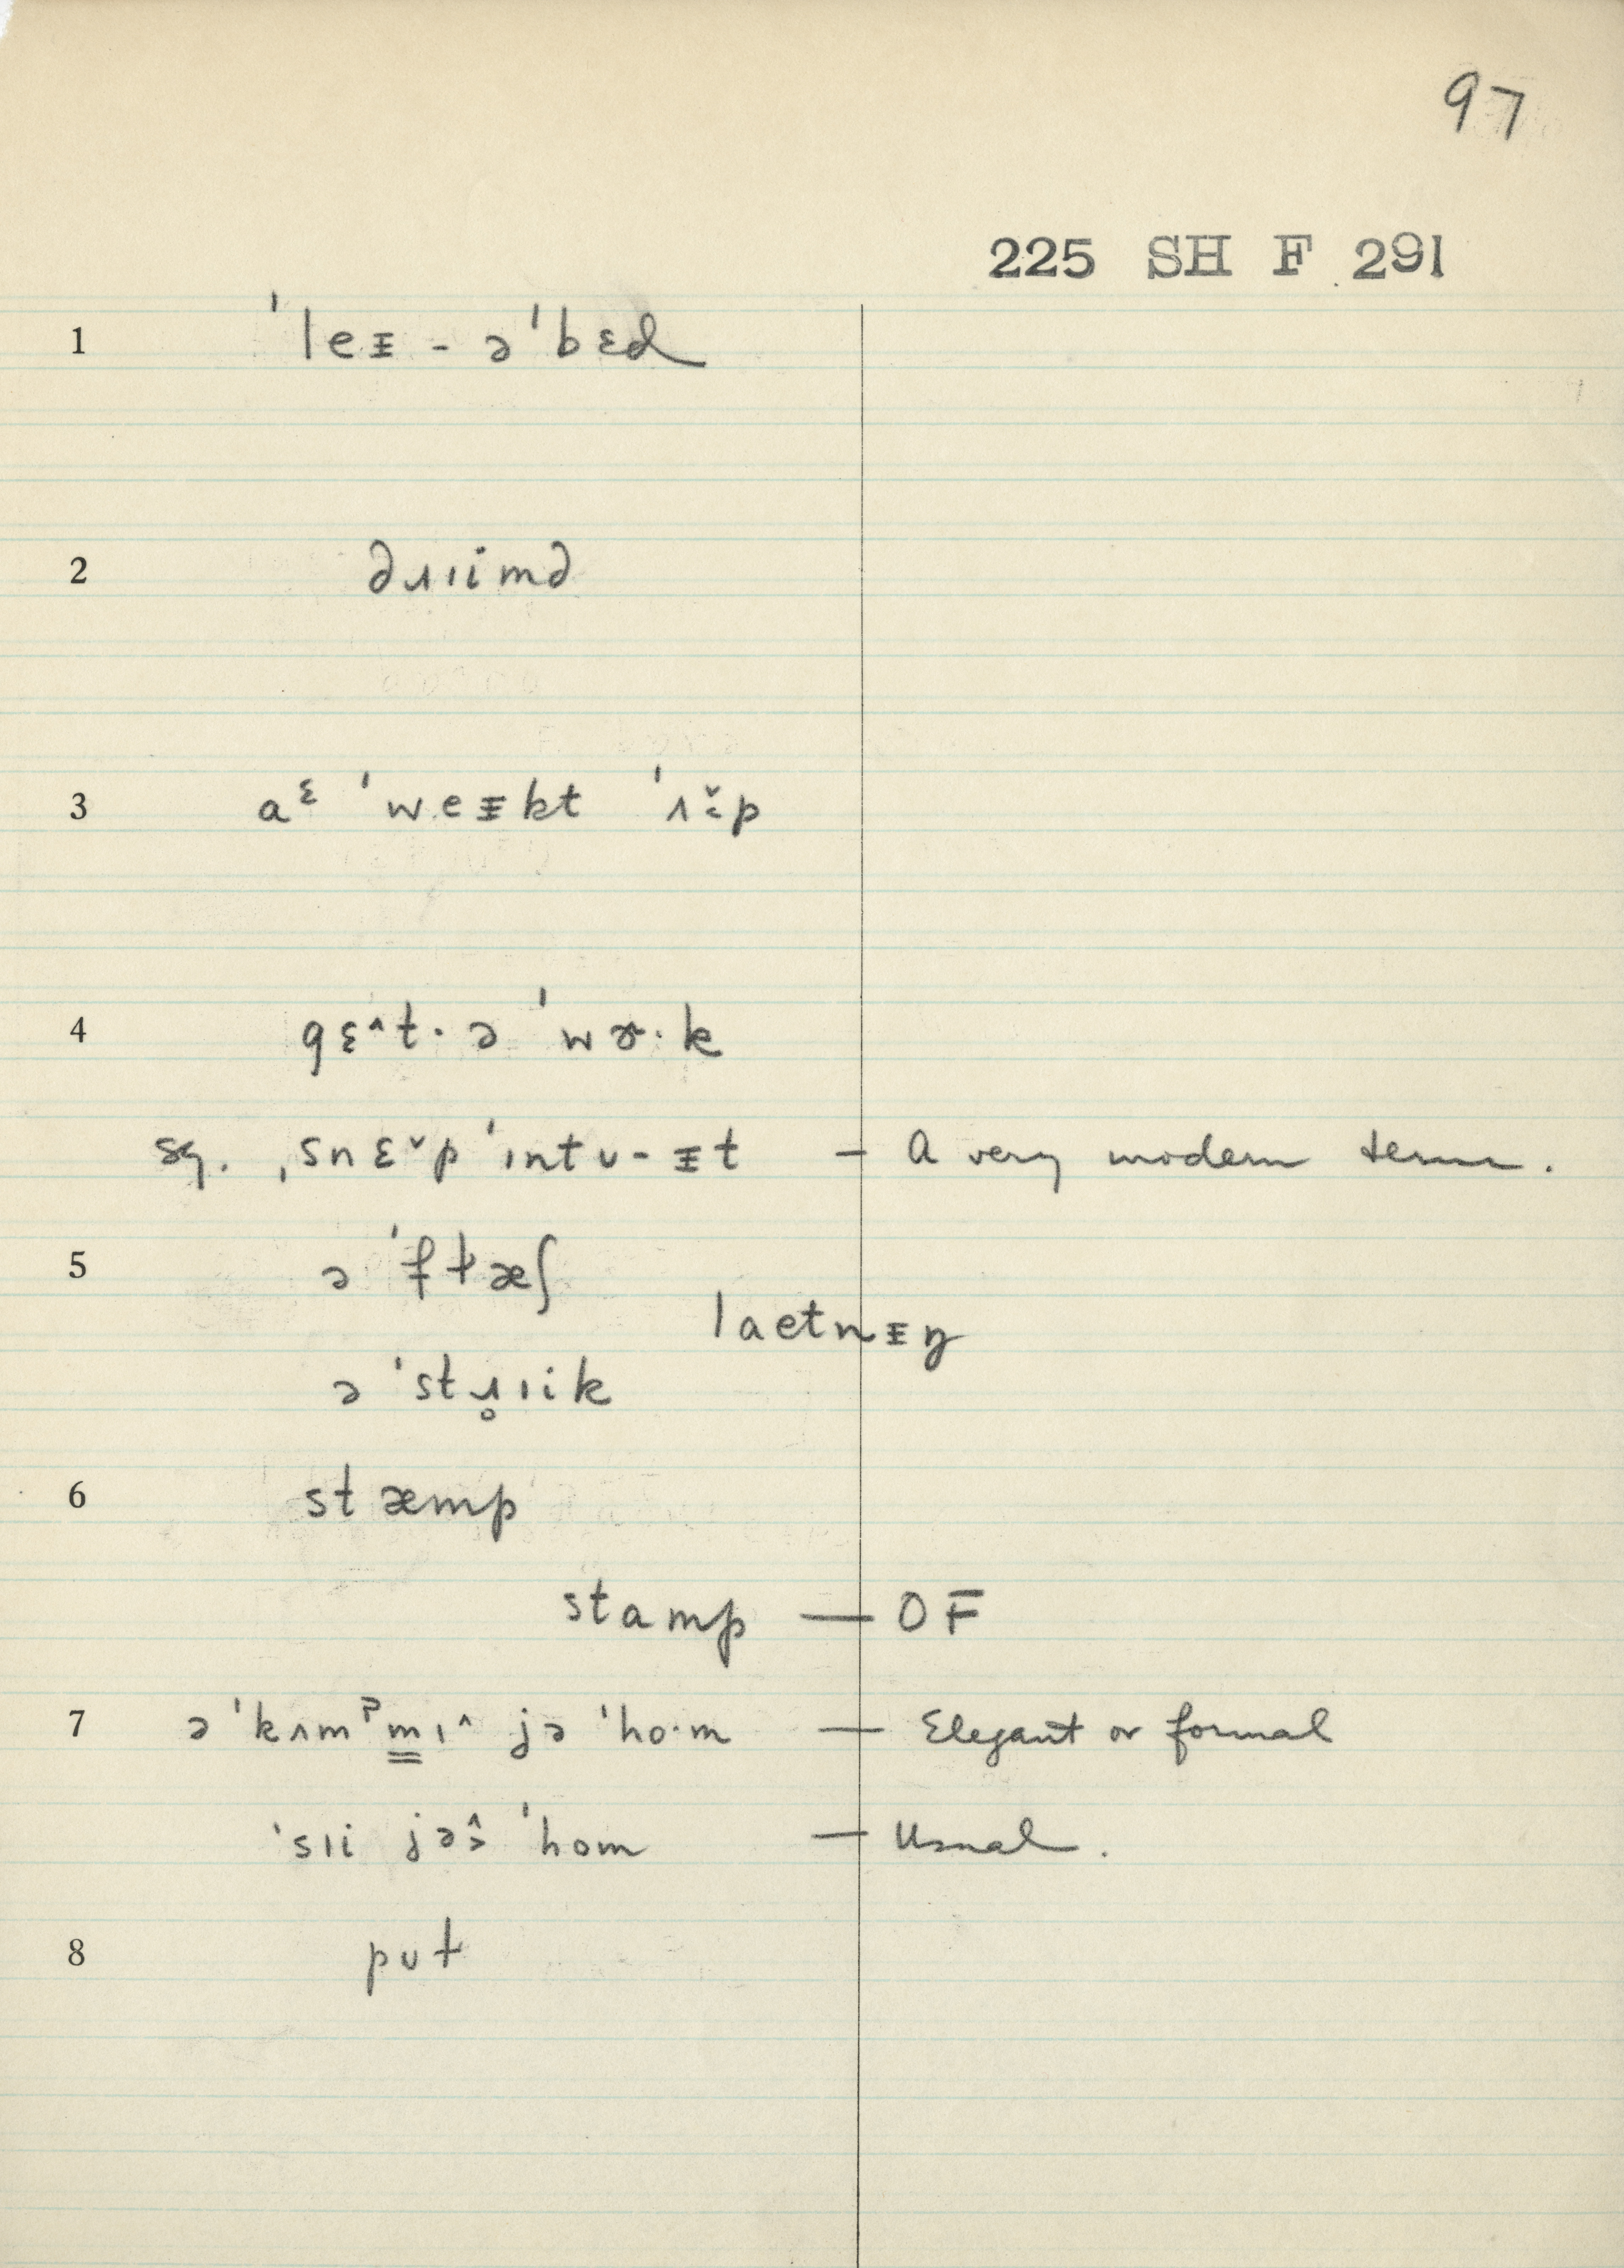 97
225 SH F 291
1 ˈleᵻ - əˈbɛd
2 dɹɪimd
3 aᶓ ˈweᵻkt ˈʌˬp
4 gɛˆt· ə ˈwɚ·k
sg. ˌsnɛˇp ˈɪntʊ- ᵻt — A very modern term.
5 ə ˈfɫæʃ
laetnᵻŋ
ə ˈstɹ̥ɪik
6 stæmp
stamp — OF
7 ə ˈkʌmᵖm̳ɪˆ jə ˈho·m — Elegant or formal
ˈsɪi jəˆ˃ ˈhom — Usual.
8 pʊt